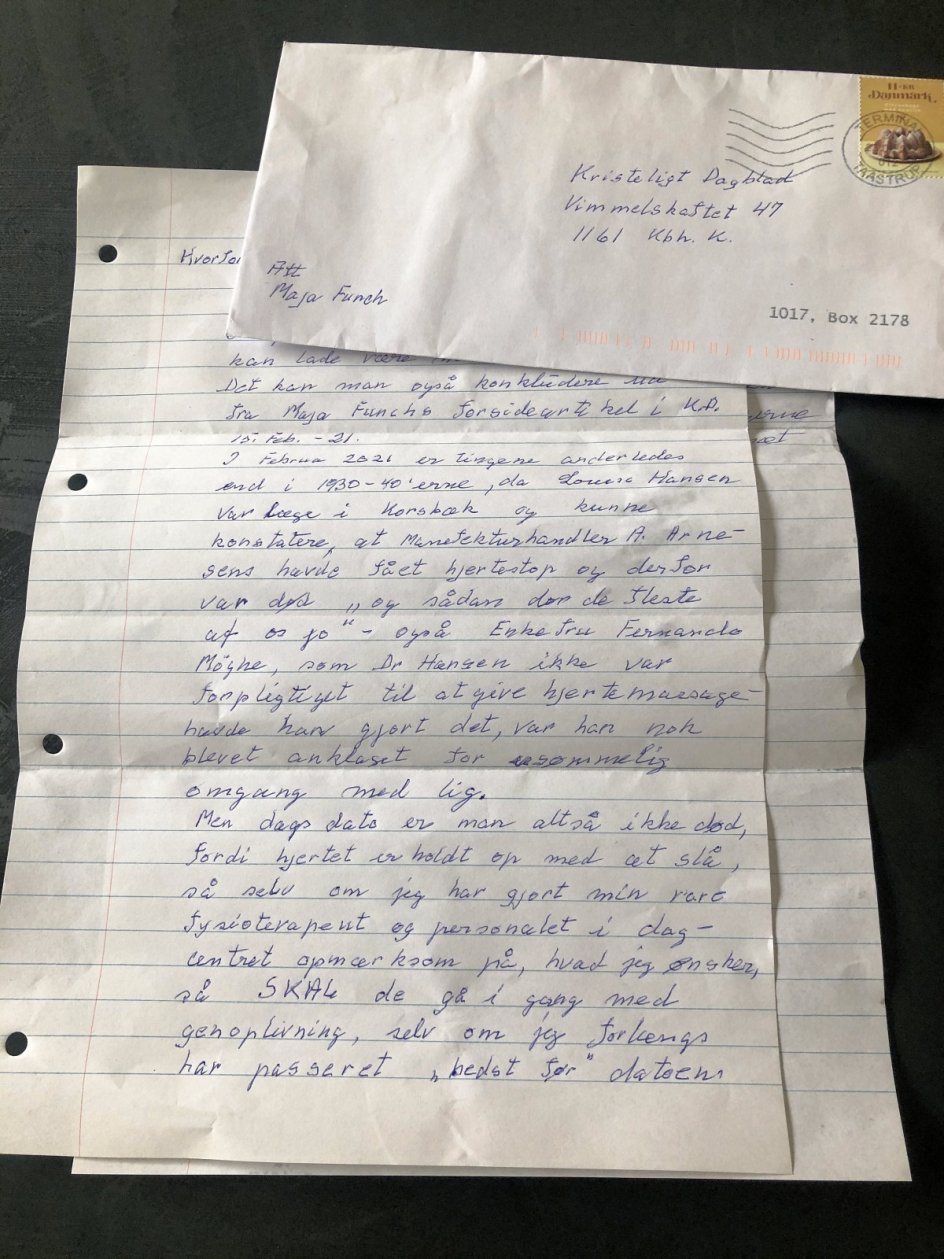 11.00
Danmark
TERMINAL
TAASTRUP
Kristeligt Dagblad
Vimmelskaftet 47
1161 Kbh. K.
Att
Maja Funch
1017, Box 2178
Hvorfor
kan lade være
Det kan man også konkludere ud
fra Maja Funchs forsideartikel i K.D.
15. Feb. -21.
I Februa 2021 er tingene anderledes
end i 1930-40'erne, da Louis Hansen
var læge i Korsbæk og kunne
konstatere, at Manufakturhandler A. Arne-
sens havde fået hjertestop og derfor
var død „og sådan dør de fleste
af os jo" - også Enkefru Fernando
Möghe, som Dr Hansen ikke var
forpligtiget til at give hjertemassage-
havde han gjort det, var han nok
blevet anklaget for usømmelig
omgang med lig.
Men dags dato er man altså ikke død,
fordi hjertet er holdt op med at slå,
så selv om jeg har gjort min rare
fysioterapeut og personalet i dag-
centret opmærksom på, hvad jeg ønsker,
så SKAL de gå i gang med
genoplivning, selv om jeg forlængs
har passeret „bedst før" datoen.